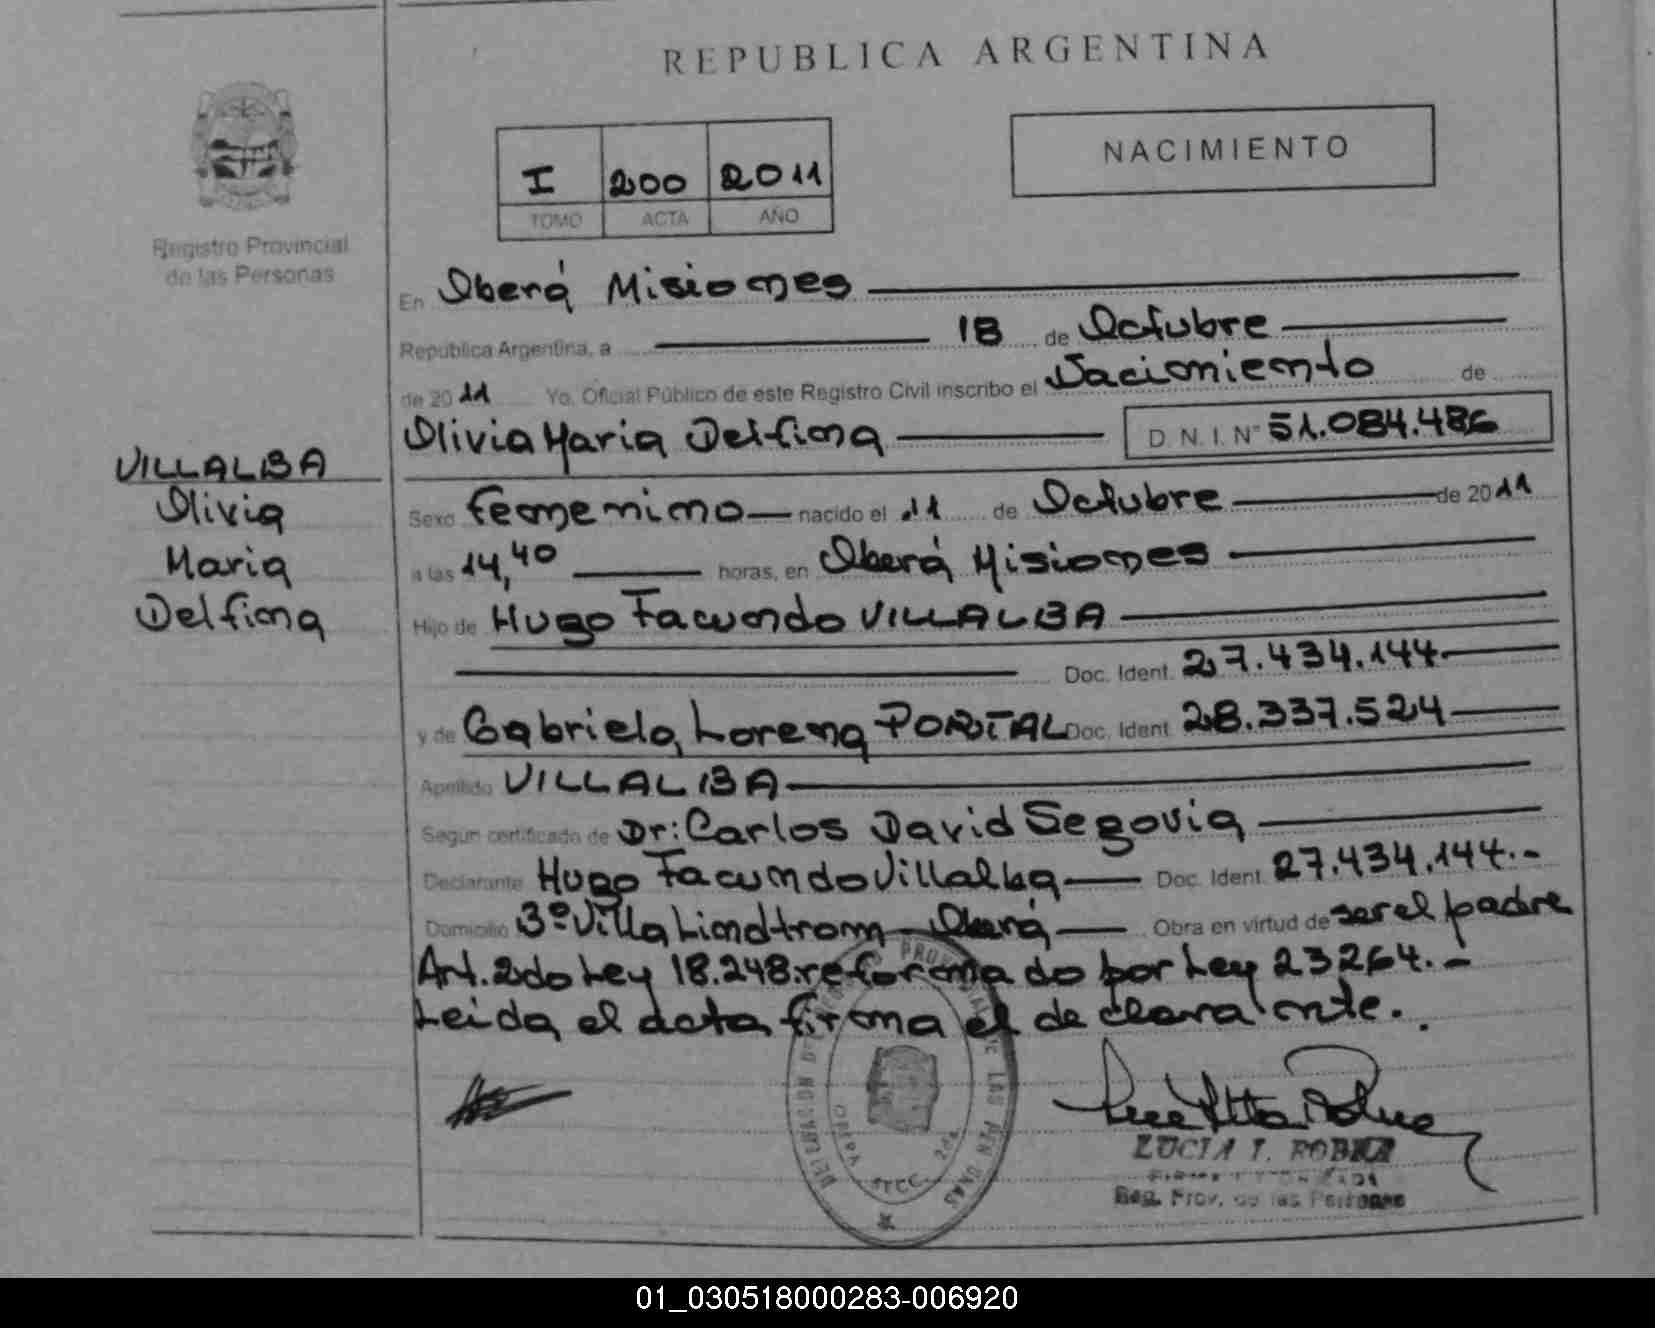 REPUBLICA ARGENTINA
NACIMIENTO
I 200 2011
TOMO ACTA AÑO
Registro Provincial
de las Personas
En Oberá Misiones
República Argentina, a 18 de Octubre
de 2011 Yo, Oficial Público de este Registro Civil inscribo el Nacimiento de
Olivia Maria Delfina D.N.I. Nº 51.084.486
VILLALBA
Olivia
Maria
Delfina
Sexo Femenino nacido el 11 de Octubre de 2011
a las 14,40 horas, en Oberá Misiones
Hijo de Hugo Facundo VILLALBA
Doc. Ident. 27.434.144
y de Gabriela Lorena PORTAL Doc. Ident. 28.337.524
Apellido VILLALBA
Según certificado de Dr: Carlos David Segovia
Declarante Hugo Facundo Villalba Doc. Ident. 27.434.144.-
Domicilio 3º Villa Lindtrom - Oberá Obra en virtud de ser el padre
Art. 2do Ley 18.248. reformado por Ley 23264.-
Leida el acta firma el declarante.
LUCIA I.
Reg. Prov. de las Personas
01_030518000283-006920